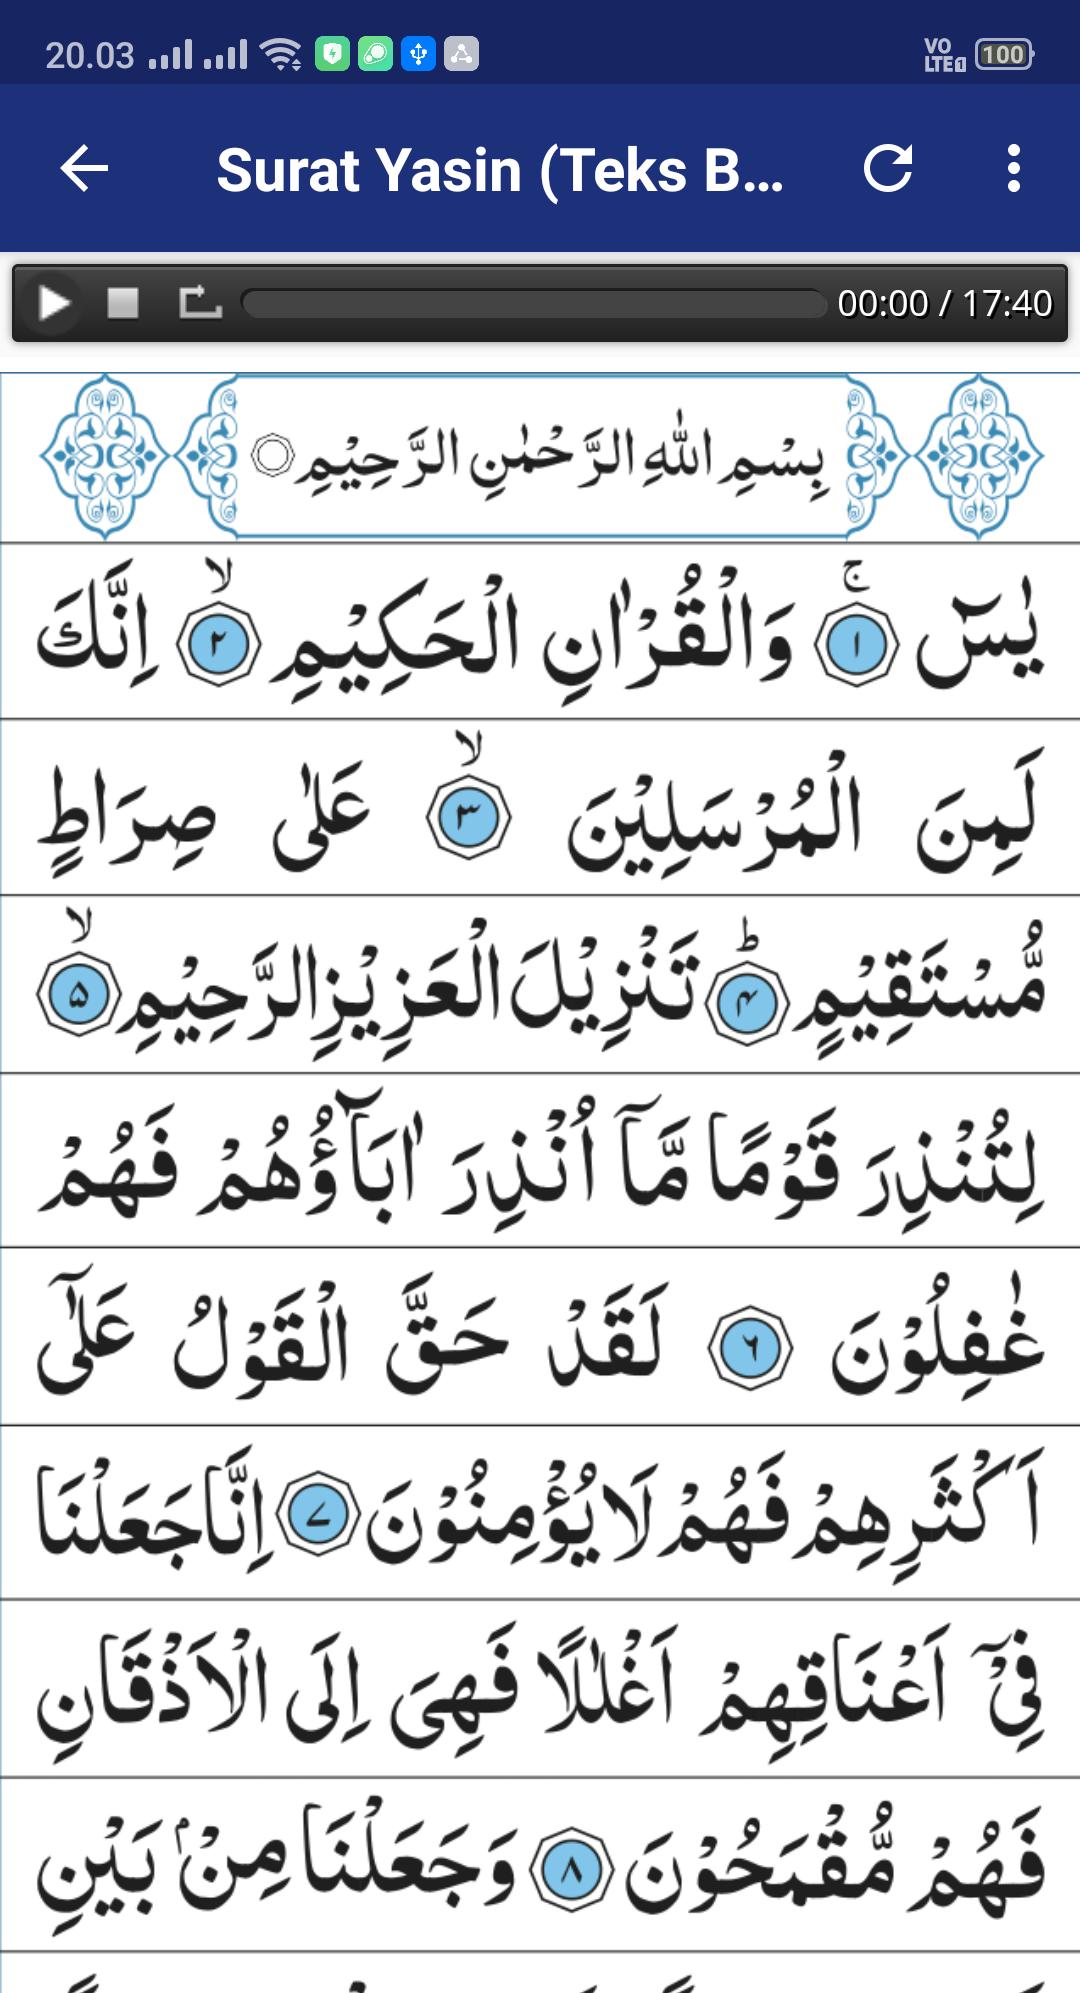 20.03 VO LTE 1 100
Surat Yasin (Teks B...
00:00 / 17:40
بِسْمِ اللّٰهِ الرَّحْمٰنِ الرَّحِيْمِ
يٰسۤ ۚ ۝١ وَالْقُرْاٰنِ الْحَكِيْمِ ۙ ۝٢ اِنَّكَ
لَمِنَ الْمُرْسَلِيْنَ ۙ ۝٣ عَلٰى صِرَاطٍ
مُّسْتَقِيْمٍ ۗ ۝٤ تَنْزِيْلَ الْعَزِيْزِ الرَّحِيْمِ ۙ ۝٥
لِتُنْذِرَ قَوْمًا مَّآ اُنْذِرَ اٰبَاۤؤُهُمْ فَهُمْ
غٰفِلُوْنَ ۝٦ لَقَدْ حَقَّ الْقَوْلُ عَلٰٓى
اَكْثَرِهِمْ فَهُمْ لَا يُؤْمِنُوْنَ ۝٧ اِنَّا جَعَلْنَا
فِيْٓ اَعْنَاقِهِمْ اَغْلٰلًا فَهِيَ اِلَى الْاَذْقَانِ
فَهُمْ مُّقْمَحُوْنَ ۝٨ وَجَعَلْنَا مِنْۢ بَيْنِ